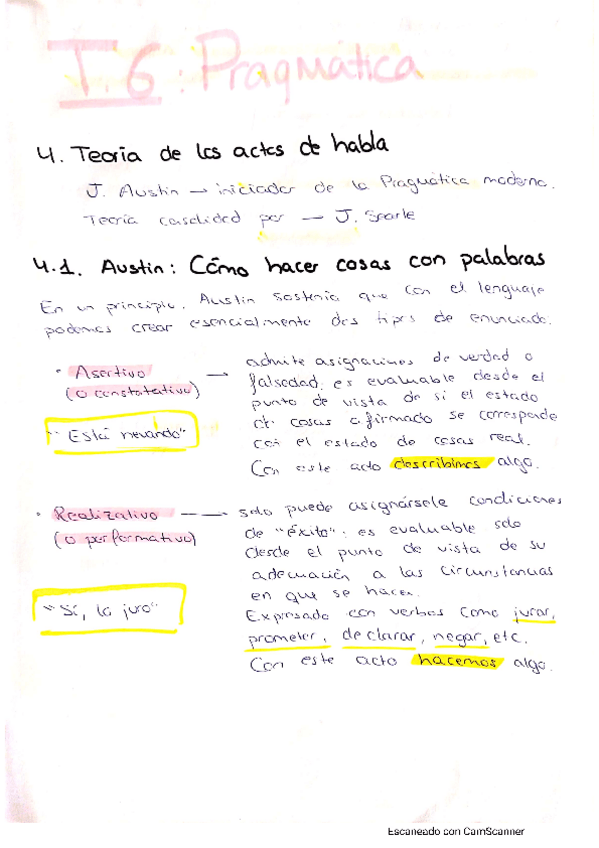 T.6: Pragmática
4. Teoría de los actos de habla
J. Austin → iniciador de la Pragmática moderna.
Teoría por → J. Searle
4.1. Austin: Cómo hacer cosas con palabras
En un principio, Austin sostenía que con el lenguaje
podemos crear esencialmente dos tipos de enunciado:
• Asertivo →
(o constatativo)
"Está nevando"
admite asignaciones de verdad o
falsedad; es evaluable desde el
punto de vista de si el estado
de cosas afirmado se corresponde
con el estado de cosas real.
Con este acto describimos algo.
• Realizativo →
(o performativo)
"Sí, lo juro"
solo puede asignársele condiciones
de "éxito": es evaluable solo
desde el punto de vista de su
adecuación a las circunstancias
en que se hacer.
Expresado con verbos como jurar,
prometer, declarar, negar, etc.
Con este acto hacemos algo.
Escaneado con CamScanner